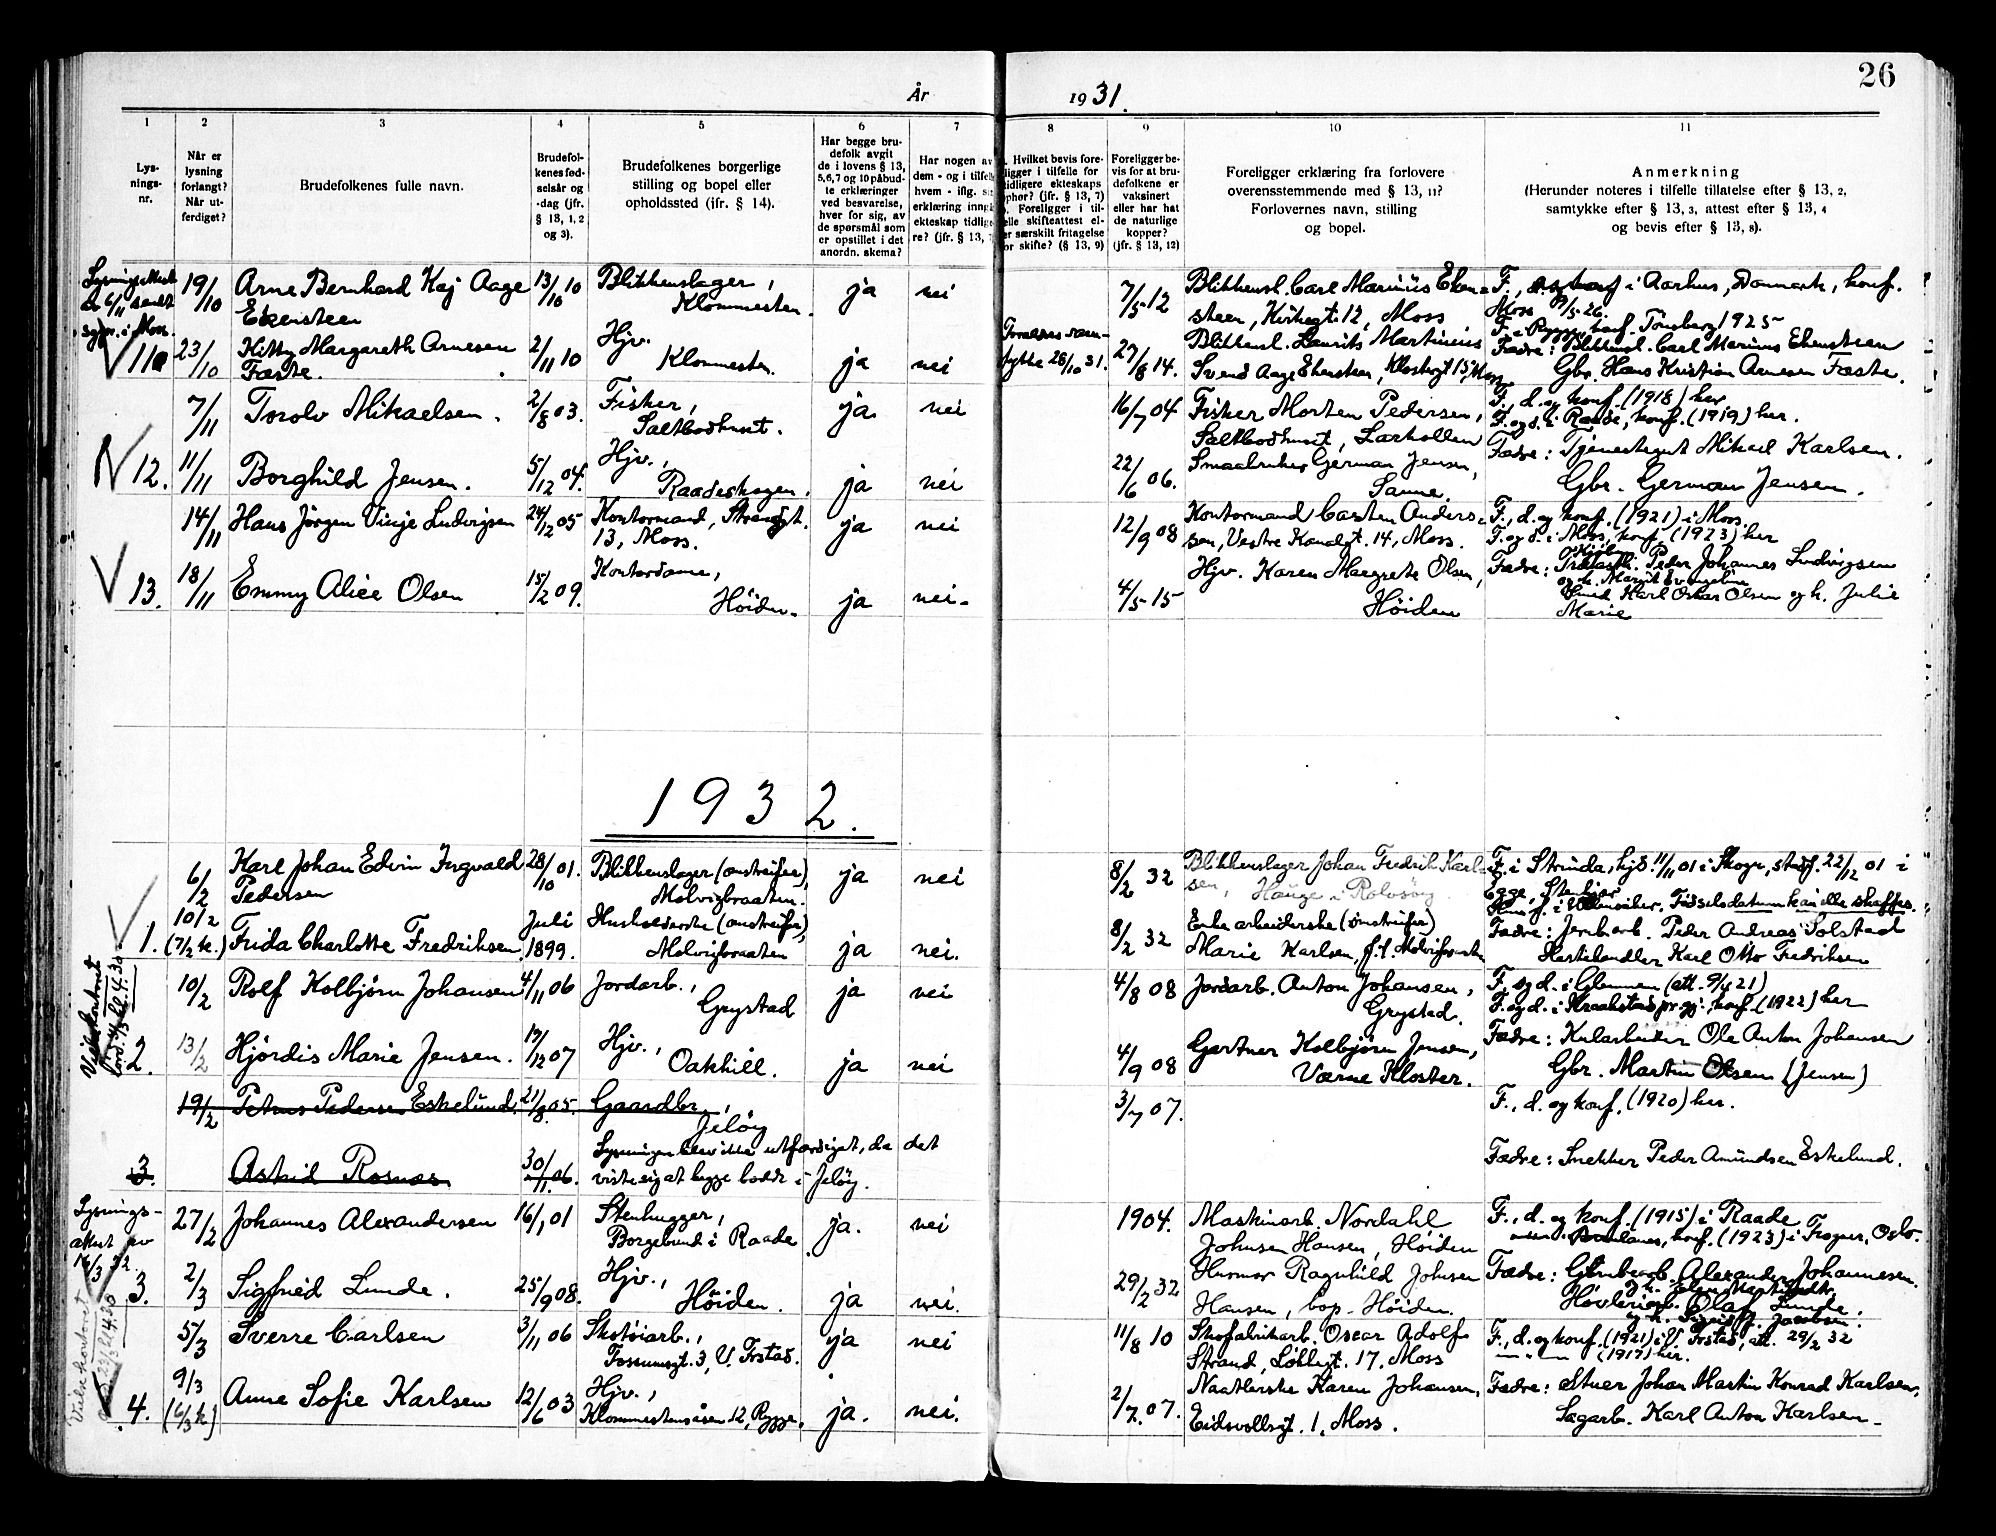 26
År 1931.
1 2 3 4 5 6 7 8 9 10 11
Lys-
nings-
nr.
Når er
lysning
forlangt?
Når ut-
ferdiget?
Brudefolkenes fulle navn.
Brudefol-
kenes fød-
selsår og
-dag (jfr.
§ 13, 1, 2
og 3).
Brudefolkenes borgerlige
stilling og bopel eller
opholdssted (jfr. § 14).
Har begge bru-
defolk avgit
de i lovens § 13,
5, 6, 7 og 10 påbud-
te erklæringer
ved besvarelse,
hver for sig, av
de spørsmål som
er opstillet i det
anordn. skema?
Har nogen av
dem - og i tilfelle
hvem - iflg. si
erklæring inng
ekteskap tidlige-
re? (jfr. § 13,
Hvilket bevis fore-
ligger i tilfelle for
tidligere ekteskaps
ophør? (jfr. § 13, 7)
Foreligger i til-
felle skifteattest el-
er særskilt fritagelse
or skifte? (§ 13, 9)
Foreligger be-
vis for at bru-
defolkene er
vaksinert
eller har hat
de naturlige
kopper?
(jfr. § 13, 12)
Foreligger erklæring fra forlovere
overensstemmende med § 13, 11?
Forlovernes navn, stilling
og bopel.
Anmerkning
(Herunder noteres i tilfelle tillatelse efter § 13, 2,
samtykke efter § 13, 3, attest efter § 13, 4
og bevis efter § 13, 8).
Lysningsattest
av 6/11 sendt
sogn. i Moss.
19/10 Arne Bernhard Kaj Aage 13/10 10 Blikkenslager, ja nei 7/5 12 Blikkensl. Carl Marinius Eken-
Ekensteen Klommesten. steen, Kirkegt. 12, Moss
F., d. og konf. i Aarhus, Danmark, konf.
Moss 9/5-26.
F. i Rygge, konf. Tønsberg 1925
11 23/10 Kitty Margareth Arnesen 2/11 10 Hjv. ja nei Foreldres sam-
Fæste. Klommesten. tykke 28/10 31. 27/8 14. Blikkensl. Laurits Martinius
Svend Aage Ekensteen, Klostergt 15, Moss
Fædre: Blikkensl. Carl Marius Ekensteen
Gbr. Hans Kristian Arnesen Fæste.
7/11 Torolv Mikaelsen. 2/8 03. Fisker, ja. nei 16/7 04 Fisker Morten Pedersen,
Saltbodhuset. Saltbodhuset, Larkollen
F., d. og konf. (1918) her
F. og d. i Raade, konf. (1919) her.
12. 11/11 Borghild Jensen. 5/12 04. Hjv., ja nei 22/6 06. Smaabruker German Jensen,
Raadeskogen. Sanne.
Fædre: Tjenestegut Mikael Karlsen.
Gbr. German Jensen.
14/11 Hans Jörgen Vinje Ludvigsen 24/12 05 Kontormand, Strandgt. ja nei 12/9 08 Kontormand Carsten Anders-
13, Moss. sen, Vestre Kanalgt. 14, Moss.
F., d. og konf. (1921) i Moss.
F. og d. i Moss, konf. (1923) her
13. 18/11 Emmy Alice Olsen 15/2 09. Kontordame, ja nei- 4/5-15 Hjv. Karen Margrete Olsen,
Höiden. Höiden
Fædre: Peder Johannes Ludvigsen
og h. Margit Evangeline
Smed Karl Oskar Olsen og h. Julie
Marie
1932.
6/2 Karl Johan Edvin Ingvald 28/10 01. Blikkenslager (omstreifer), ja nei 8/2 32 Blikkenslager Johan Fredrik Karl-
Pedersen Molvigbraaten. sen, Hauge i Rolvsöy
F. i Strinda, hjd. 11/11 01 i Skogn, stadf. 22/12 01 i
Egge, Stenkjær
Födselsdatum kan ikke skaffes.
1. 10/2 (7/2 k.) Frida Charlotte Fredriksen Juli 1899. Husholderske (omstreifer), ja nei. 8/2 32 Enke arbeiderske (omstreifer)
Molvigbraaten Marie Karlsen, f. t. Molvigbraaten
Fædre: Jernarb. Peder Andreas Solstad
Hestehandler Karl Otto Fredriksen
10/2 Rolf Kolbjørn Johansen 4/11 06 Jordarb., ja nei 4/8 08 Jordarb. Anton Johansen,
Grystad Grystad.
F. og d. i Glemmen (att. 9/4 21)
F. og d. i Kraakstad pr.gj., konf. (1922) her
Vielse kontoret
lörd. 13/2 kl. 4.30
2. 13/2 Hjördis Marie Jensen. 19/12 07 Hjv., ja nei 4/9 08 Gartner Kolbjörn Jensen,
Oakhill. Værne Kloster.
Fædre: Kularbeider Ole Anton Johansen
Gbr. Martin Olsen (Jensen)
19/2 Petrus Pedersen Eskelund. 21/8 05. Gaardbr., 3/7 07. F., d. og konf. (1920) her.
Jelöy
3. Astrid Rosnæs 30/11 06. Lysningen blev ikke utfærdiget, da det
viste sig at begge bodde i Jelöy.
Fædre: Snekker Peder Amundsen Eskelund.
Lysnings-
attest av
16/3 32.
27/2 Johannes Alexandersen 16/1 01 Stenhugger, ja. nei 1904. Maskinarb. Nordahl
Borgebund i Raade Johnsen Hansen, Höiden
F., d. og konf. (1915) i Raade
konf. (1923) i Frogner, Oslo.
3. 2/3 Sigfred Lunde. 25/9 08. Hjv., ja nei. 29/2 32 Husmor Ragnhild Johnsen
Höiden. Hansen, bop. Höiden.
Fædre: Alexander Johannesen.
Høvleriarb. Olaf Lunde.
og h. Jacobsen.
5/3 Sverre Carlsen 3/11 06 Skotöiarb., ja nei 11/8 10 Skofabrikarb. Oscar Adolf
Fossumsgt. 3, V. Frstad. Strand, Løkkegt. 17, Moss
F., d. og konf. (1921) i V. Frstad, att. 29/2 32
(1917) her.
4. 9/3 (6/3 k) Anne Sofie Karlsen 12/6 03 Hjv., ja. nei. 2/7 07. Naatlerske Karen Johansen,
Klommestensåsen 12, Rygge. Eidsvollsgt. 1, Moss.
Fædre: Stuer Johan Martin Konrad Karlsen,
Sagarb. Karl Anton Karlsen-